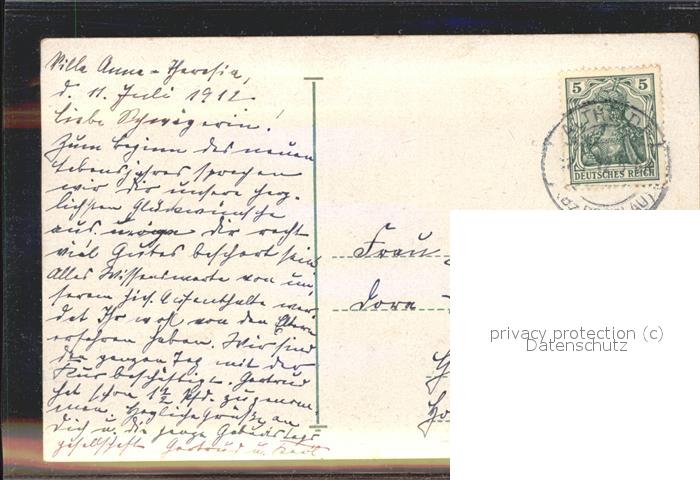 Villa Anna-Theresia,
d. 11. Juli 1912.
Liebe Schwägerin!
Zum Beginn des neuen
Lebensjahres sprechen
wir dir unsere herz-
lichsten Glückwünsche
aus. dir recht
viel Gutes beschert sein.
Alles Wissenswerte von un-
serem hies. Aufenthalte wer-
det Ihr wohl von den Eltern
erfahren haben. Wir sind
den ganzen Tag mit der
Kur beschäftigt. Gertrud
hat schon 1½ Pfd. zugenom-
men. Herzliche Grüße an
Dich u. die ganze Geburtstags
gesellschaft Gertrud u. Karl.
5 5
DEUTSCHES REICH
Frau
Dora
privacy protection (c)
Datenschutz